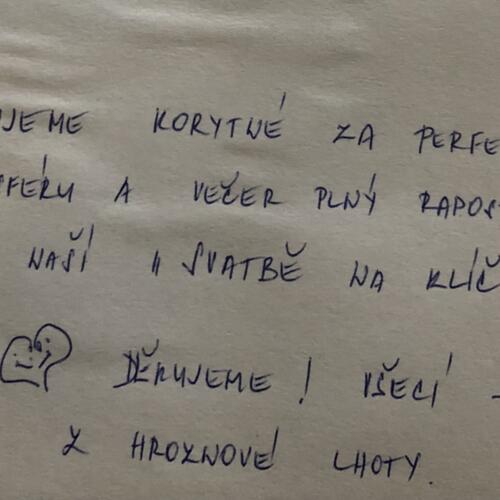 UJEME KORYTNÉ ZA PERFE
SFÉRU A VEČER PLNÝ RADOS
NAŠÍ " SVATBĚ NA KLÍČ
DĚKUJEME! VŠECÍ -
Z HROZNOVÉ LHOTY.